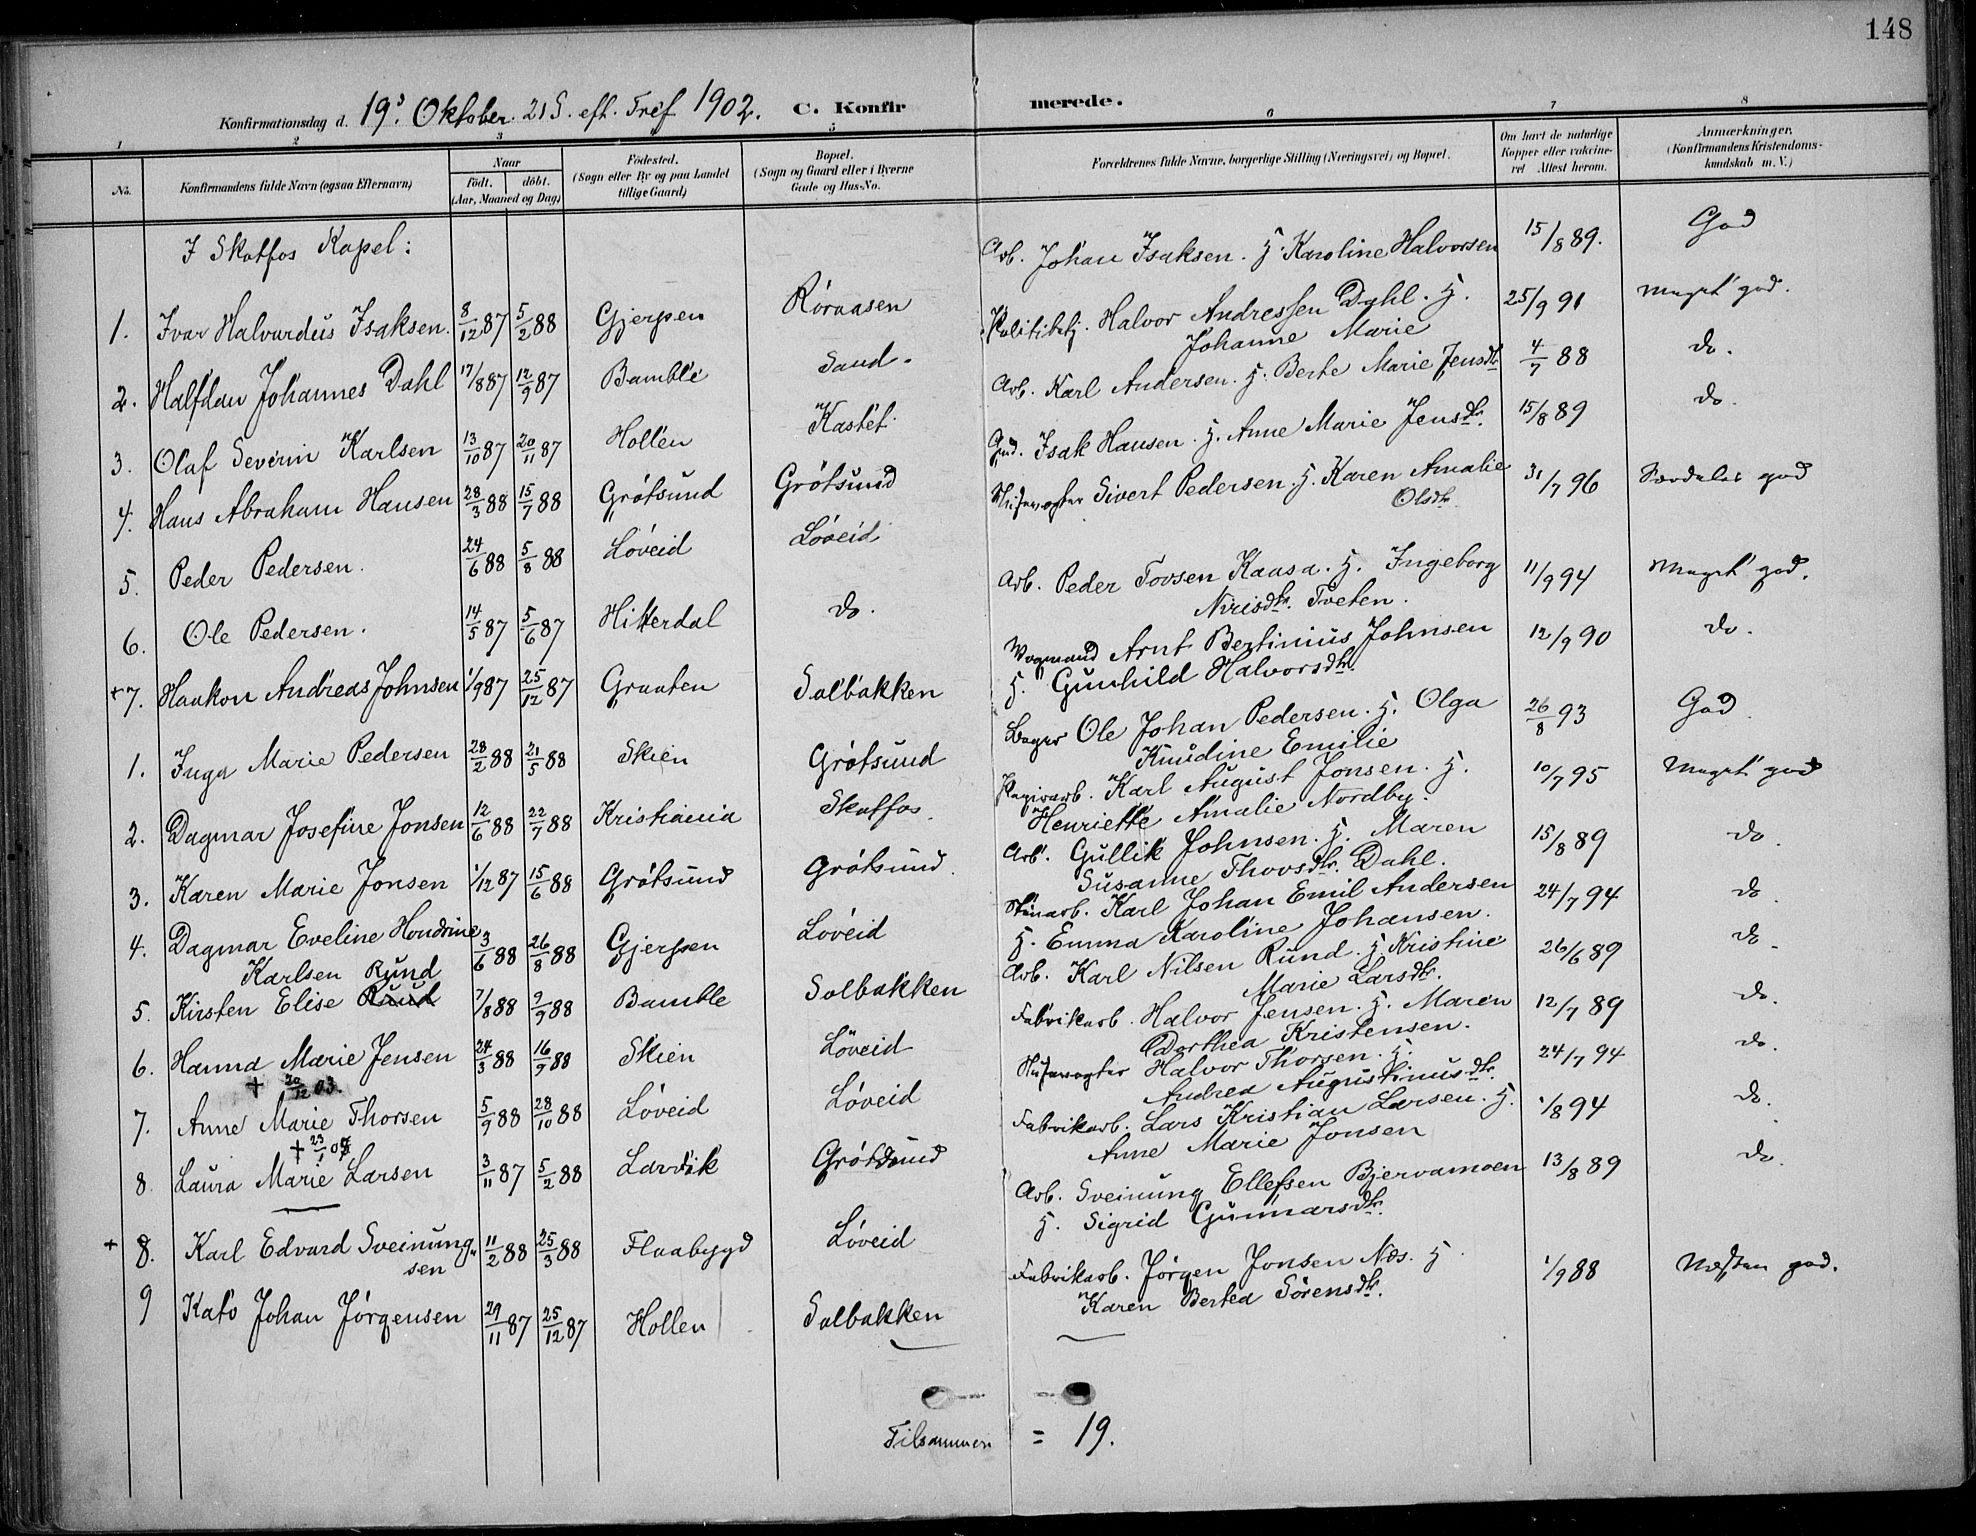 148
Konfirmationsdag d. 19de Oktober. 21 S. eft. Tref 1902. C. Konfirmerede.
1 2 3 4 5 6 7 8
No. Konfirmandens fulde Navn (ogsaa Efternavn) Naar Födt. döbt. (Aar, Maaned og Dag) Födested. (Sogn eller By og paa Landet tillige Gaard) Bopæl. (Sogn og Gaard eller i Byerne Gade og Hus-No. Forældrenes fulde Navne, borgerlige Stilling (Næringsvei) og Bopæl. Om havt de naturlige Kopper eller vakcineret Attest herom. Anmærkninger. (Konfirmandens Kristendomskundskab m. V.)
I Skotfos Kapel:
1. Ivar Halvardus Isaksen. 8/12 87 5/2 88 Gjerpen Röraasen Arb. Johan Isaksen. H. Karoline Halvorsen 15/8 89. God
2. Halfdan Johannes Dahl 17/8 87 12/9 87 Bamble Sand. Politibetj. Halvor Andressen Dahl. H. 25/9 91 Meget god.
Johanne Marie
3. Olaf Severin Karlsen 13/10 87 20/11 87 Hollen Kastet Arb. Karl Andersen. H. Berte Marie Jensdtr 4/7 88 do.
4. Hans Abraham Hansen 28/3 88 15/7 88 Grötsund Grötsund Gmd. Isak Hansen. H. Anne Marie Jensdtr. 15/8 89 do.
5. Peder Pedersen. 24/6 88 5/8 88 Löveid Löveid Slusevogter Sivert Pedersen. H. Karen Amalie 31/7 96 Særdeles god
Olsdtr.
6. Ole Pedersen. 14/5 87 5/6 87 Hitterdal do. Arb. Peder Tovsen Kaasa. H. Ingeborg 11/9 94 Meget god.
Nirisdtr. Tveten.
+ 7. Haakon Andreas Johnsen 1/9 87 25/12 87 Graaten Solbakken Vognmand Arnt Bertinius Johnsen 12/9 90 do.
H. Gunhild Halvorsdtr.
1. Inga Marie Pedersen 28/2 88 21/5 88 Skien Grötsund Bager Ole Johan Pedersen. H. Olga 26/8 93 God.
Knudine Emilie
2. Dagmar Josefine Jonsen 12/6 88 22/7 88 Kristiania Skotfos. Papirarb. Karl August Jonsen. H. 10/7 95 Meget god
Henriette Amalie Nordby.
3. Karen Marie Jonsen 1/12 87 15/6 88 Grötsund Grötsund. Arb. Gullik Johnsen. H. Maren 15/8 89 do
Susanne Thovsdtr. Dahl.
4. Dagmar Eveline Hondrine 3/6 88 26/8 88 Gjerpen Löveid Stenarb. Karl Johan Emil Andersen 24/7 94 do
Karlsen H. Emma Karoline Johansen.
Rund
5. Kirsten Elise Ruud 7/8 88 9/9 88 Bamble Solbakken Arb. Karl Nilsen Rund. H. Kristine 26/6 89 do.
Marie Larsdtr.
6. Hanna Marie Jensen 24/3 88 16/9 88 Skien Löveid Fabrikarb. Halvor Jensen. H. Maren 12/7 89 do.
+ 20/12 03. Dorthea Kristensen.
7. Anne Marie Thorsen 5/9 88 28/10 88 Löveid Löveid Slusevogter Halvor Thorsen. H. 24/7 94 do.
+ 23/1 Andrea Augustinusdtr.
8. Laura Marie Larsen 3/11 87 5/2 88 Larvik Grötsund Fabrikarb. Lars Kristian Larsen. H. 1/8 94 do.
Anne Marie Jonsen
+ 8. Karl Edvard Sveinungsen 11/2 88 25/3 88 Flaabygd Löveid Arb. Sveinung Ellefsen Bjervamoen 13/8 89 do.
H. Sigrid Gunnarsdtr.
9 Kato Johan Jörgensen 29/11 87 25/12 87 Hollen Solbakken Fabrikarb. Jörgen Jonsen Næs. H. 1/9 88 Næsten god.
Karen Bertea Sörensdtr.
Tilsammen = 19.